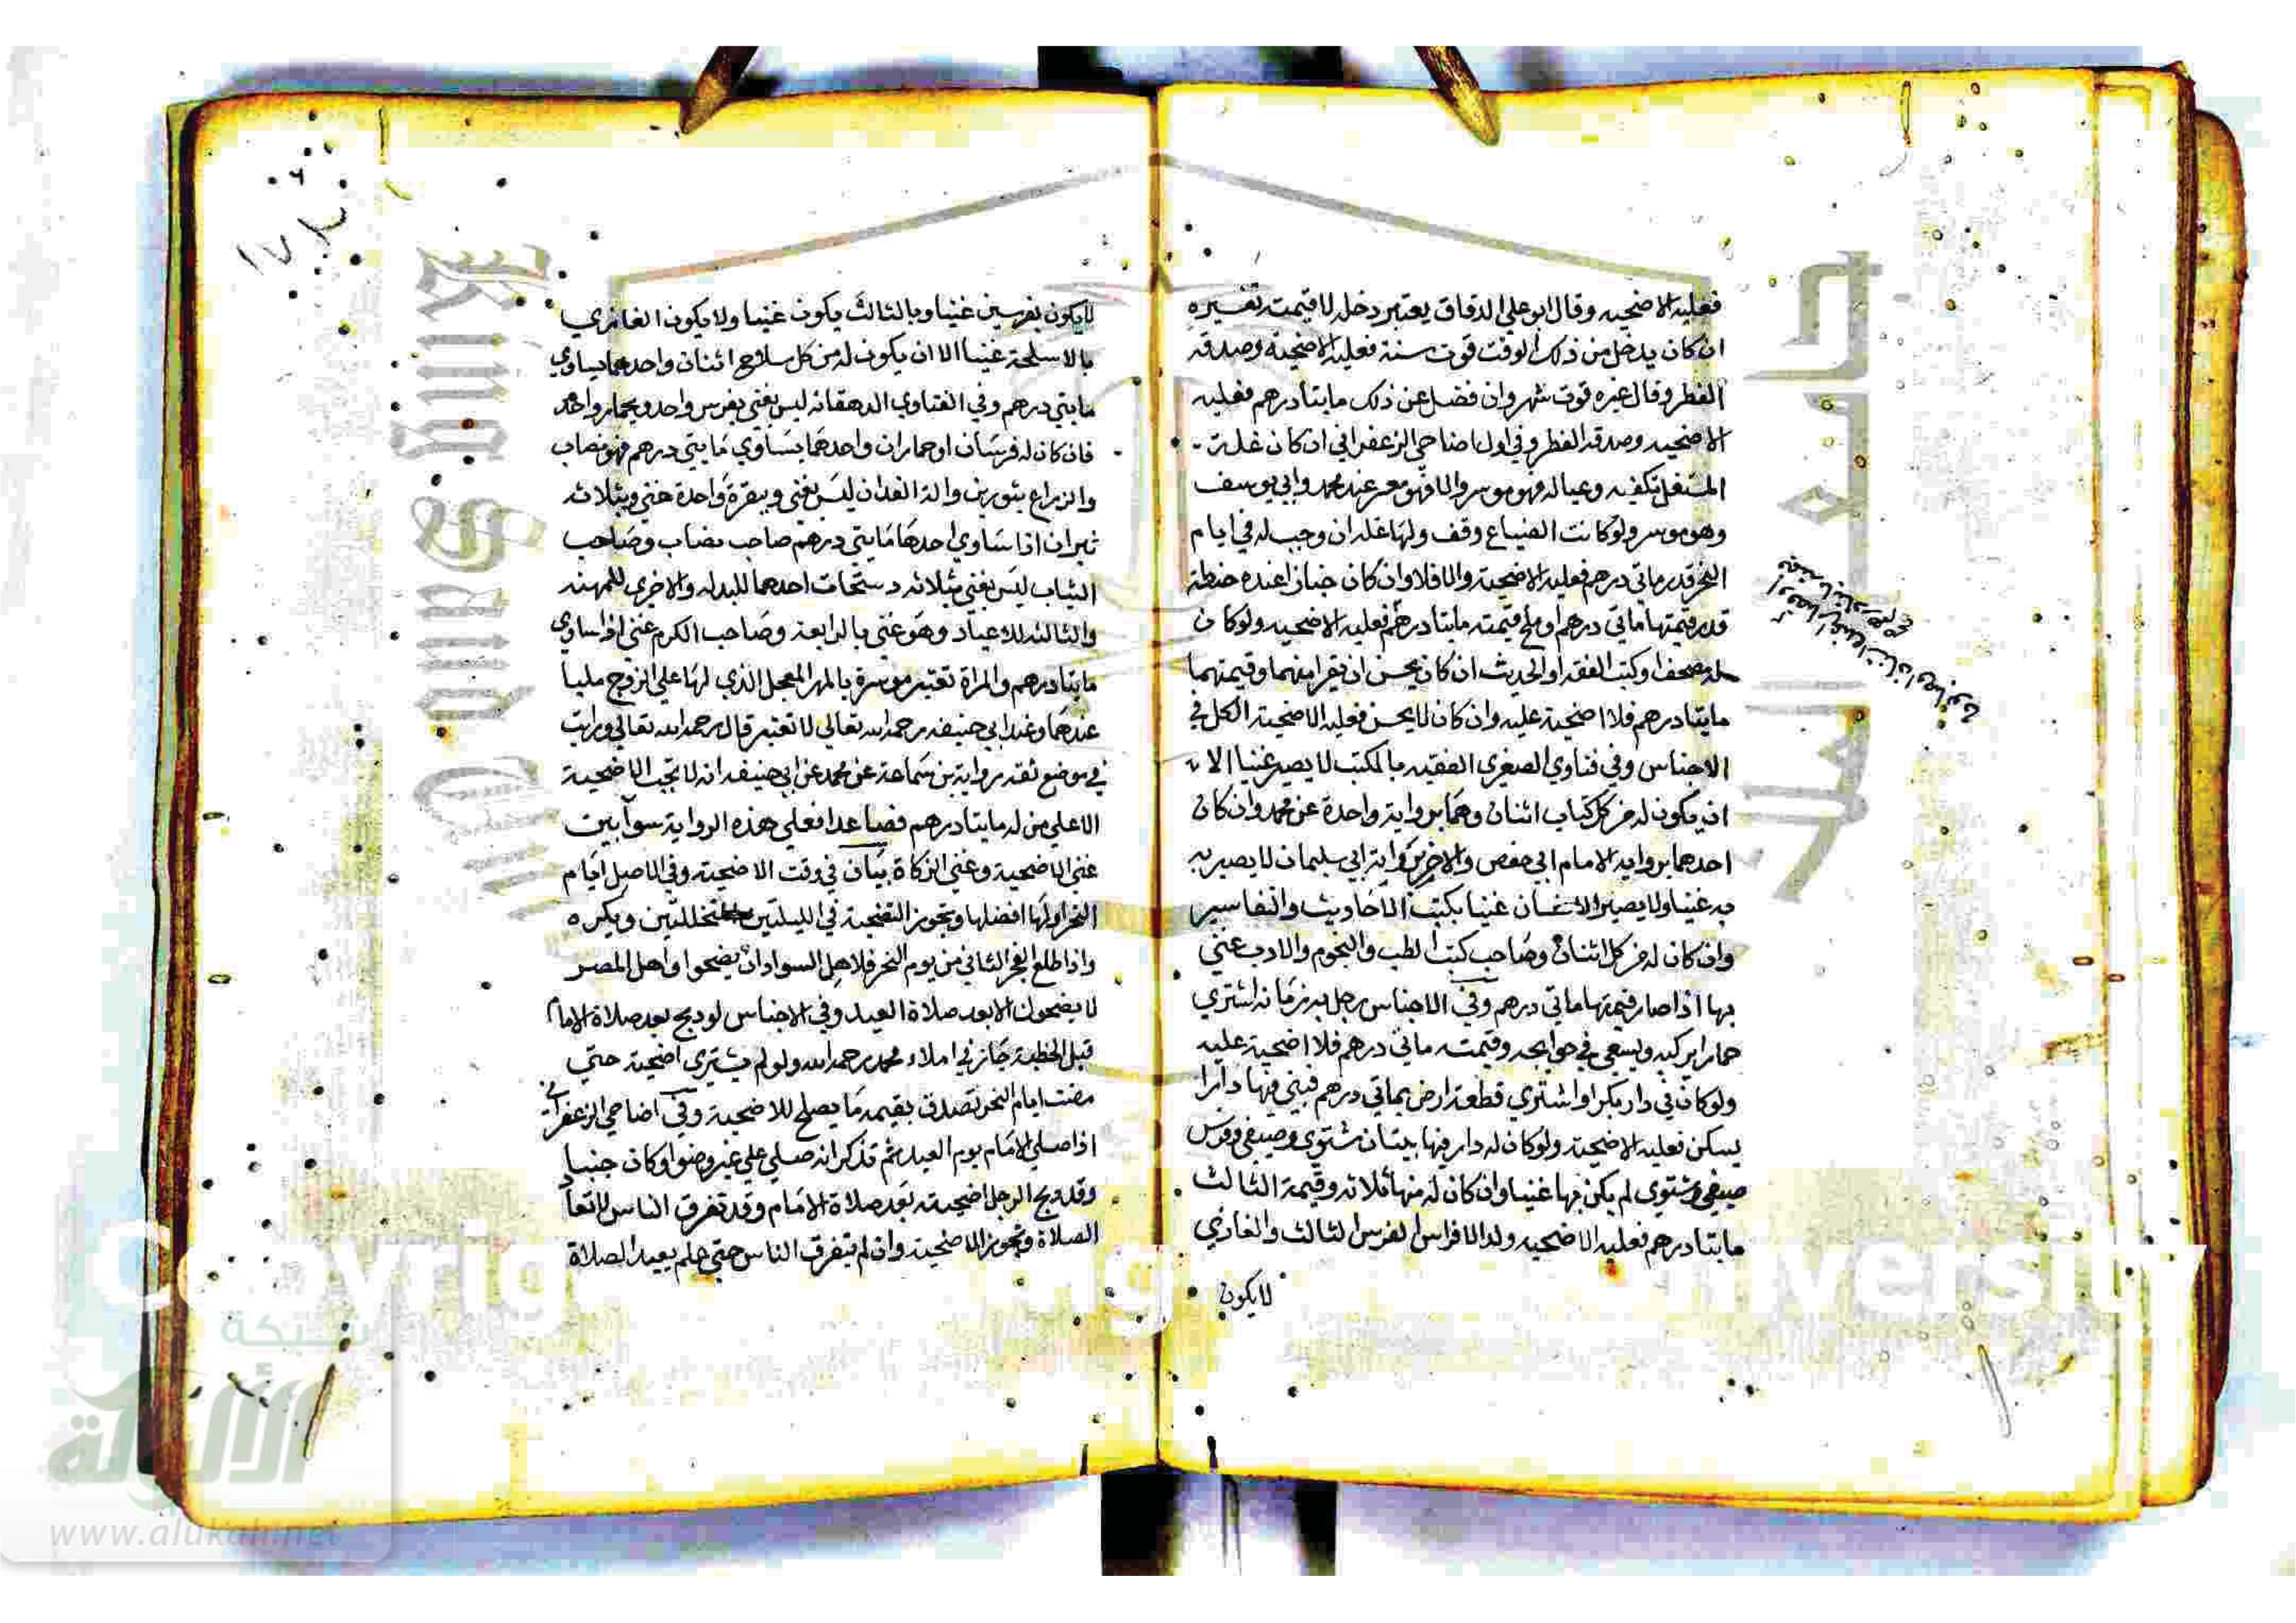 فعليه الاضحيه وقال ابو علي الدقاق يعتبر دخله لا قيمته تفسيره
ان كان يدخل من ذلك الوقت قوت سنة فعليه الاضحية وصدقة
الفطر وقال غيره قوت شهر وان فضل عن ذلك مايتا درهم فعليه
الاضحيه وصدقة الفطر وفي اول اضاحي الزعفراني ان كان غلة
المستغل تكفيه وعياله فهو موسر والا فهو معسر عند محمد وابي يوسف
وهو موسر ولو كانت الضياع وقف ولها غله ان وجب له في ايام
النحر قدر ماتي درهم فعليه الاضحية والا فلا وان كان خباز اعنده حنطة
قدر قيمتها ماتي درهم او ملح قيمته مايتا درهم فعليه الاضحيه ولو كان
له مصحف او كتب الفقه او الحديث ان كان يحسن ان يقرا منهما وقيمتهما
مايتا درهم فلا اضحية عليه وان كان لا يحسن فعليه الاضحية الكل في
الاجناس وفي فتاوي الصغري الفقيه بالكتب لا يصير غنيا الا
ان يكون له من كل كتاب اثنان وهما برواية واحدة عن محمد وان كان
احدهما برواية الامام ابي حفص والاخر برواية ابي سليمان لا يصير به
به غنيا ولا يصير الانسان غنيا بكتب الاحاديث والتفاسير
وان كان له من كل اثنان وصاحب كتب الطب والنجوم والادب غني
بها اذا صار قيمتها ماتي درهم وفي الاجناس رجل به زمانة اشتري
حمارا يركبه ويسعي في حوايجه وقيمته ماتي درهم فلا اضحية عليه
ولو كان في دار بكرا واشتري قطعة ارض بماتي درهم فبني فيها دارا
يسكن فعليه الاضحية ولو كان له دار فيها بيتان شتوي وصيفي وفرش
صيفي وشتوي لم يكن بها غنيا وان كان له منها ثلاثه وقيمة الثالث
مايتا درهم فعليه الاضحيه ولد الافراس الفرس الثالث والغازي
لا يكون
لا يكون بفرسين غنيا وبالثالث يكون غنيا ولا يكون الغازي
بالاسلحة غنيا الا ان يكون له من كل سلاح اثنان واحدهما يساوي
مايتي درهم وفي الفتاوي الدهقان ليس بغني بفرس واحد وبحمار واحد
فان كان له فرسان او حماران واحدهما يساوي مايتي درهم فهو نصاب
والزراع بثورين والة الفدان ليس بغني وببقرة واحدة غني وبثلاث
ثيران اذا ساوي احدها مايتي درهم صاحب نصاب وصاحب
الثياب ليس بغني بثلاثه دستجات احدهما للبدله والاخري للمهنه
والثالثه للاعياد وهو غني بالرابعة وصاحب الكرم غني اذا ساوي
مايتا درهم والمراة تعتبر موسرة بالمهر المعجل الذي لها علي الزوج مليا
عندهما وعند ابي حنيفه رحمه الله تعالي لا تعتبر قال رحمه الله تعالي ورايت
في موضع ثقه برواية بن سماعة عن محمد عن ابي حنيفه انه لا تجب الاضحية
الا علي من له مايتا درهم فصاعدا فعلي هذه الرواية سوا بين
غني الاضحية وغني الزكاة بيان في وقت الاضحية وفي الاصل ايام
النحر اولها افضلها وتجوز التضحية في الليلتين المتخللتين ويكره
واذا طلع الفجر الثاني من يوم النحر فلاهل السواد ان يضحوا واهل المصر
لا يضحون الا بعد صلاة العيد وفي الاجناس لو ذبح بعد صلاة الامام
قبل الخطبة جاز في املاء محمد رحمه الله ولو لم يشتري اضحية حتي
مضت ايام النحر تصدق بقيمة ما يصلح للاضحية وفي اضاحي الزعفراني
اذا صلي الامام يوم العيد ثم تذكر انه صلي علي غير وضوا وكان جنبا
وقد ذبح الرجل اضحيته بعد صلاة الامام وقد تفرق الناس لا تعاد
الصلاة وتجوز الاضحية وان لم يتفرق الناس حتي علم يعيد الصلاة
شبكة
الألوكة
www.alukah.net